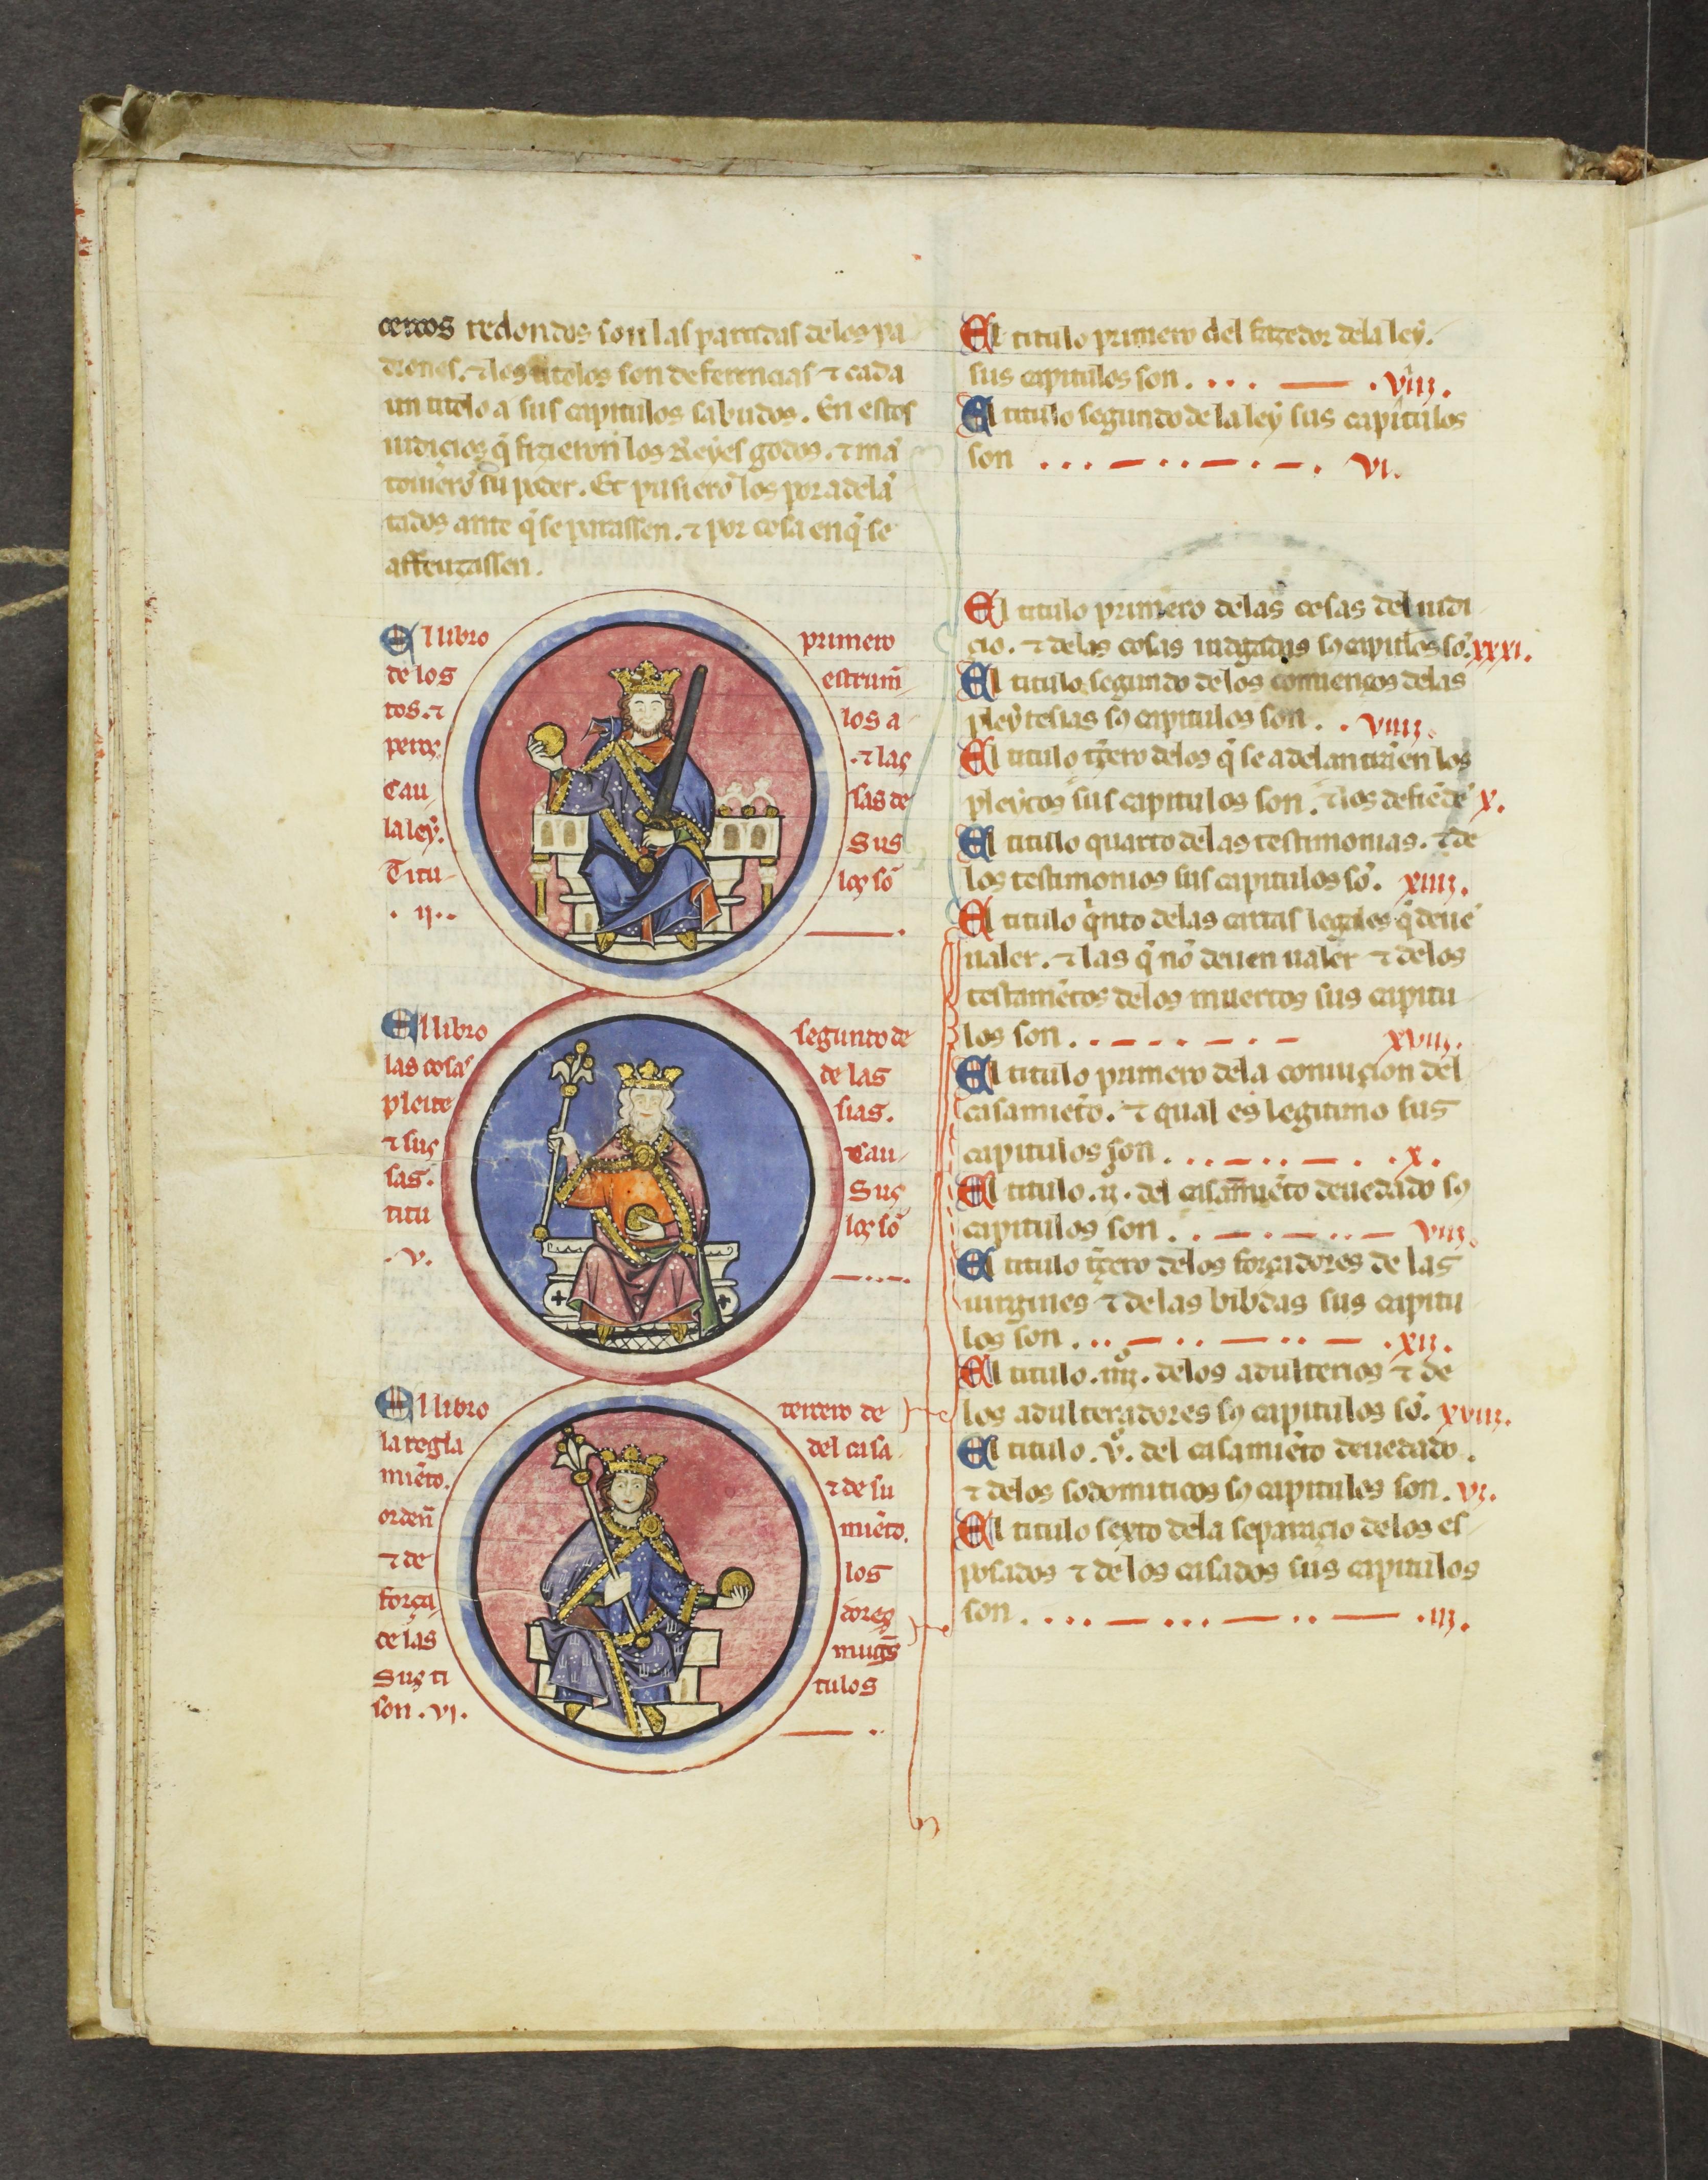 cercos redondos son las partidas delos pa
drones. ⁊ los titolos son deferencias ⁊ cada
un titolo a sus capitulos sabudos. En estos
iudiçios q̃ fizieron los Reyes godos. ⁊ mã
touierõ su poder. Et pusierõ los por adelã
tados ante q̃ se parassen. ⁊ por cosa en q̃ se
affeuzassen.
El libro primero
de los estrumẽ
tos. ⁊ los a
peros. ⁊ las
Cau sas de
la ley. Sus
Titu los sõ
. ij..
El libro segundo de
las cosas de las
pleite sias.
⁊ sus Cau
sas. Sus
titu los sõ
. v.
El libro tercero de
la regla del casa
miẽto. ⁊ de su
ordeñ miẽto.
⁊ de los
força dores
de las mug̃s
Sus ti tulos
son . vj.
El titulo primero del fazedor dela ley.
sus capitulos son . . . . . viij.
El titulo segundo de la ley sus capitulos
son . . . . . . . . vi.
El titulo primero delas cosas del iudi
çio. ⁊ delas cosas iudgadas sꝯ capitulos sõ. xxxi.
El titulo segundo de los comienços delas
pleytesias sꝯ capitulos son . . viiij.
El titulo tẽro delos q̃ se adelantarã en los
pleytos sus capitulos son. ⁊ los defiẽdẽ x.
El titulo quarto delas testimonias. ⁊ de
los testimonios sus capitulos sõ. xiiij.
El titulo q̃nto delas cartas legales q̃ deuẽ
ualer. ⁊ las q̃ nõ deuen ualer ⁊ delos
testamẽtos delos muertos sus capitu
los son . . . . . . xviij.
El titulo primero dela coniuçion del
casamiẽto. ⁊ qual es legitimo sus
capitulos son . . . . . . . x.
El titulo .ijº. del casamiẽto deuedado sꝯ
capitulos son . . . . . . viij.
El titulo tẽro delos forçadores de las
uirgines ⁊ delas bibdas sus capitu
los son . . . . . . . . . xij.
El titulo .iiijº. delos adulterios ⁊ de
los adulteradores sꝯ capitulos sõ. xviij.
El titulo .vº. del casamiẽto deuedado.
⁊ delos sodomiticos sꝯ capitulos son. vj.
El titulo sexto dela separaçio delos es
posados ⁊ de los casados sus capitulos
son . . . . . . . . . . iij.